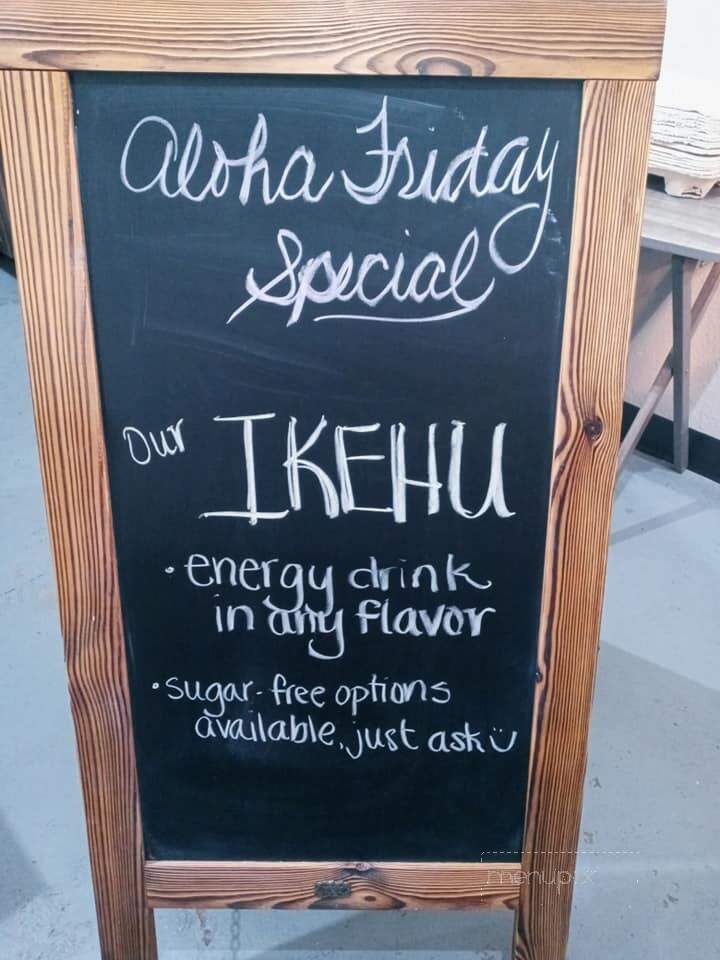 Aloha Friday
Special
Our IKEHU
• energy drink
in any flavor
• sugar-free options
available, just ask ü
menupix